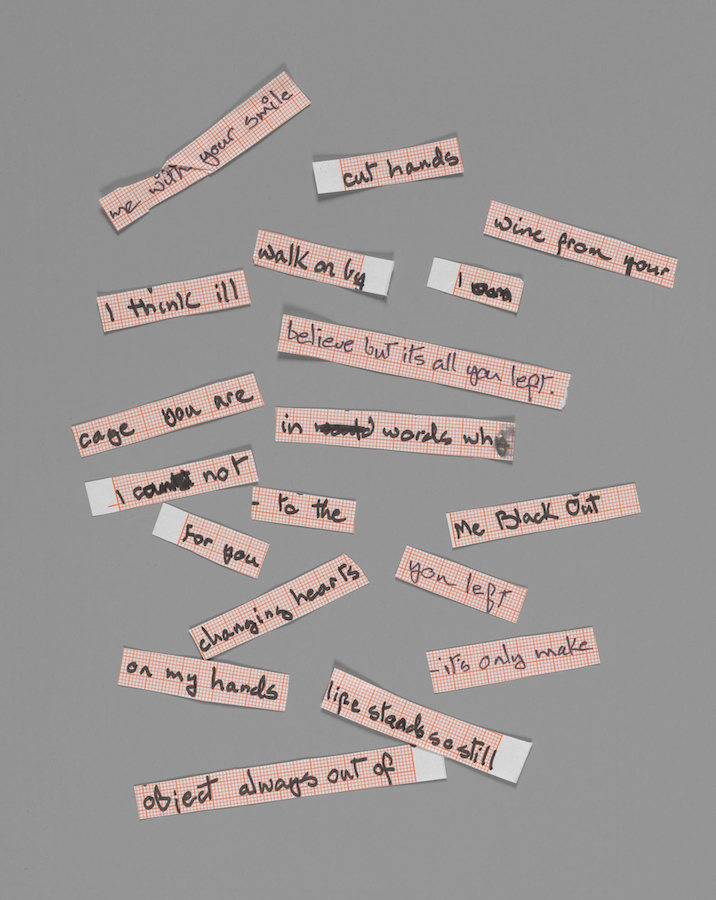 me with your smile
cut hands
wine from your
walk on by
I
I think ill
believe but its all you left.
cage you are
in words wh
I not
- to the
Me Black Out
for you
changing hearts
you left
it's only make
on my hands
life stands so still
object always out of